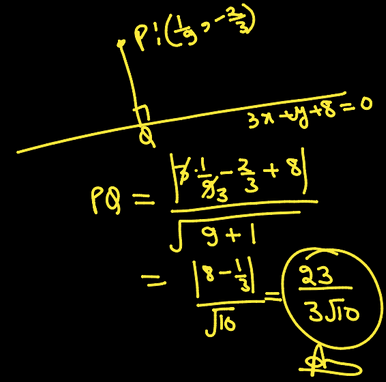 P: (1/9, -2/3)
3x+y+8=0
Q
PQ = |3·1/9 3 - 2/3 + 8| / √(9+1)
= |8 - 1/3| / √10 = 23 / 3√10